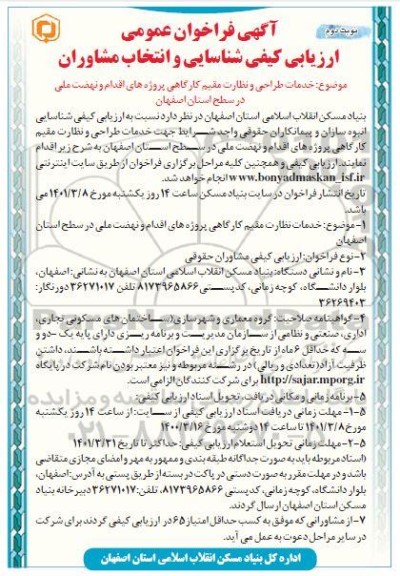 نوبت دوم
آگهی فراخوان عمومی
ارزیابی کیفی شناسایی و انتخاب مشاوران
موضوع: خدمات طراحی و نظارت مقیم کارگاهی پروژه های اقدام و نهضت ملی
در سطح استان اصفهان
بنیاد مسکن انقلاب اسلامی استان اصفهان در نظر دارد نسبت به ارزیابی کیفی شناسایی
انبوه سازان و پیمانکاران حقوقی واجد شرایط جهت خدمات طراحی و نظارت مقیم
کارگاهی پروژه های اقدام و نهضت ملی در سطح استان اصفهان به شرح زیر اقدام
نمایند. ارزیابی کیفی و همچنین کلیه مراحل برگزاری فراخوان از طریق سایت اینترنتی
www.bonyadmaskan_isf.ir انجام خواهد شد.
تاریخ انتشار فراخوان در سایت بنیاد مسکن ساعت ۱۴ روز یکشنبه مورخ ۱۴۰۱/۳/۸ می
باشد.
۱-موضوع: خدمات نظارت مقیم کارگاهی پروژه های اقدام و نهضت ملی در سطح استان
اصفهان
۲-نوع فراخوان: ارزیابی کیفی مشاوران حقوقی
۳-نام و نشانی دستگاه: بنیاد مسکن انقلاب اسلامی استان اصفهان به نشانی: اصفهان،
بلوار دانشگاه، کوچه زمانی، کدپستی ۸۱۷۳۹۶۵۸۶۶ تلفن ۳۶۲۷۱۰۱۷ دورنگار:
۳۶۲۶۹۴۰۳
۴-گواهینامه صلاحیت: گروه معماری و شهرسازی (ساختمان های مسکونی، تجاری،
اداری، صنعتی و نظامی از سازمان مدیریت و برنامه ریزی دارای پایه یک -دو و
سه که حداقل ۶ ماه از تاریخ برگزاری این فراخوان اعتبار داشته باشند، داشتن
ظرفیت آزاد (تعدادی و ریالی) در رشته مربوطه و نیز معتبر بودن نام شرکت در پایگاه
http://sajar.mporg.ir برای شرکت کنندگان الزامی است.
۵-برنامه زمانی و مکانی دریافت، تحویل اسناد ارزیابی کیفی:
۵-۱- مهلت زمانی دریافت اسناد ارزیابی کیفی از سایت: از ساعت ۱۴ روز یکشنبه
مورخ ۱۴۰۱/۳/۸ تا ساعت ۱۴ دوشنبه مورخ ۱۴۰۰/۳/۱۶
۵-۲-مهلت زمانی تحویل استعلام ارزیابی کیفی: حداکثر تا تاریخ ۱۴۰۱/۳/۳۱
(اسناد مربوطه باید به صورت جداگانه طبقه بندی و ممهور به مهر و امضای مجازی متقاضی
باشد و در مهلت مقرر به صورت دستی در پاکت در بسته از طریق پستی به آدرس: اصفهان،
بلوار دانشگاه، کوچه زمانی، کدپستی ۸۱۷۳۹۶۵۸۶۶، تلفن: ۳۶۲۷۱۰۱۷ دبیرخانه بنیاد
مسکن استان اصفهان ارسال گردند.
۷-از مشاورانی که موفق به کسب حداقل امتیاز ۶۵ در ارزیابی کیفی گردند برای شرکت
در سایر مراحل دعوت به عمل می آید.
اداره کل بنیاد مسکن انقلاب اسلامی استان اصفهان